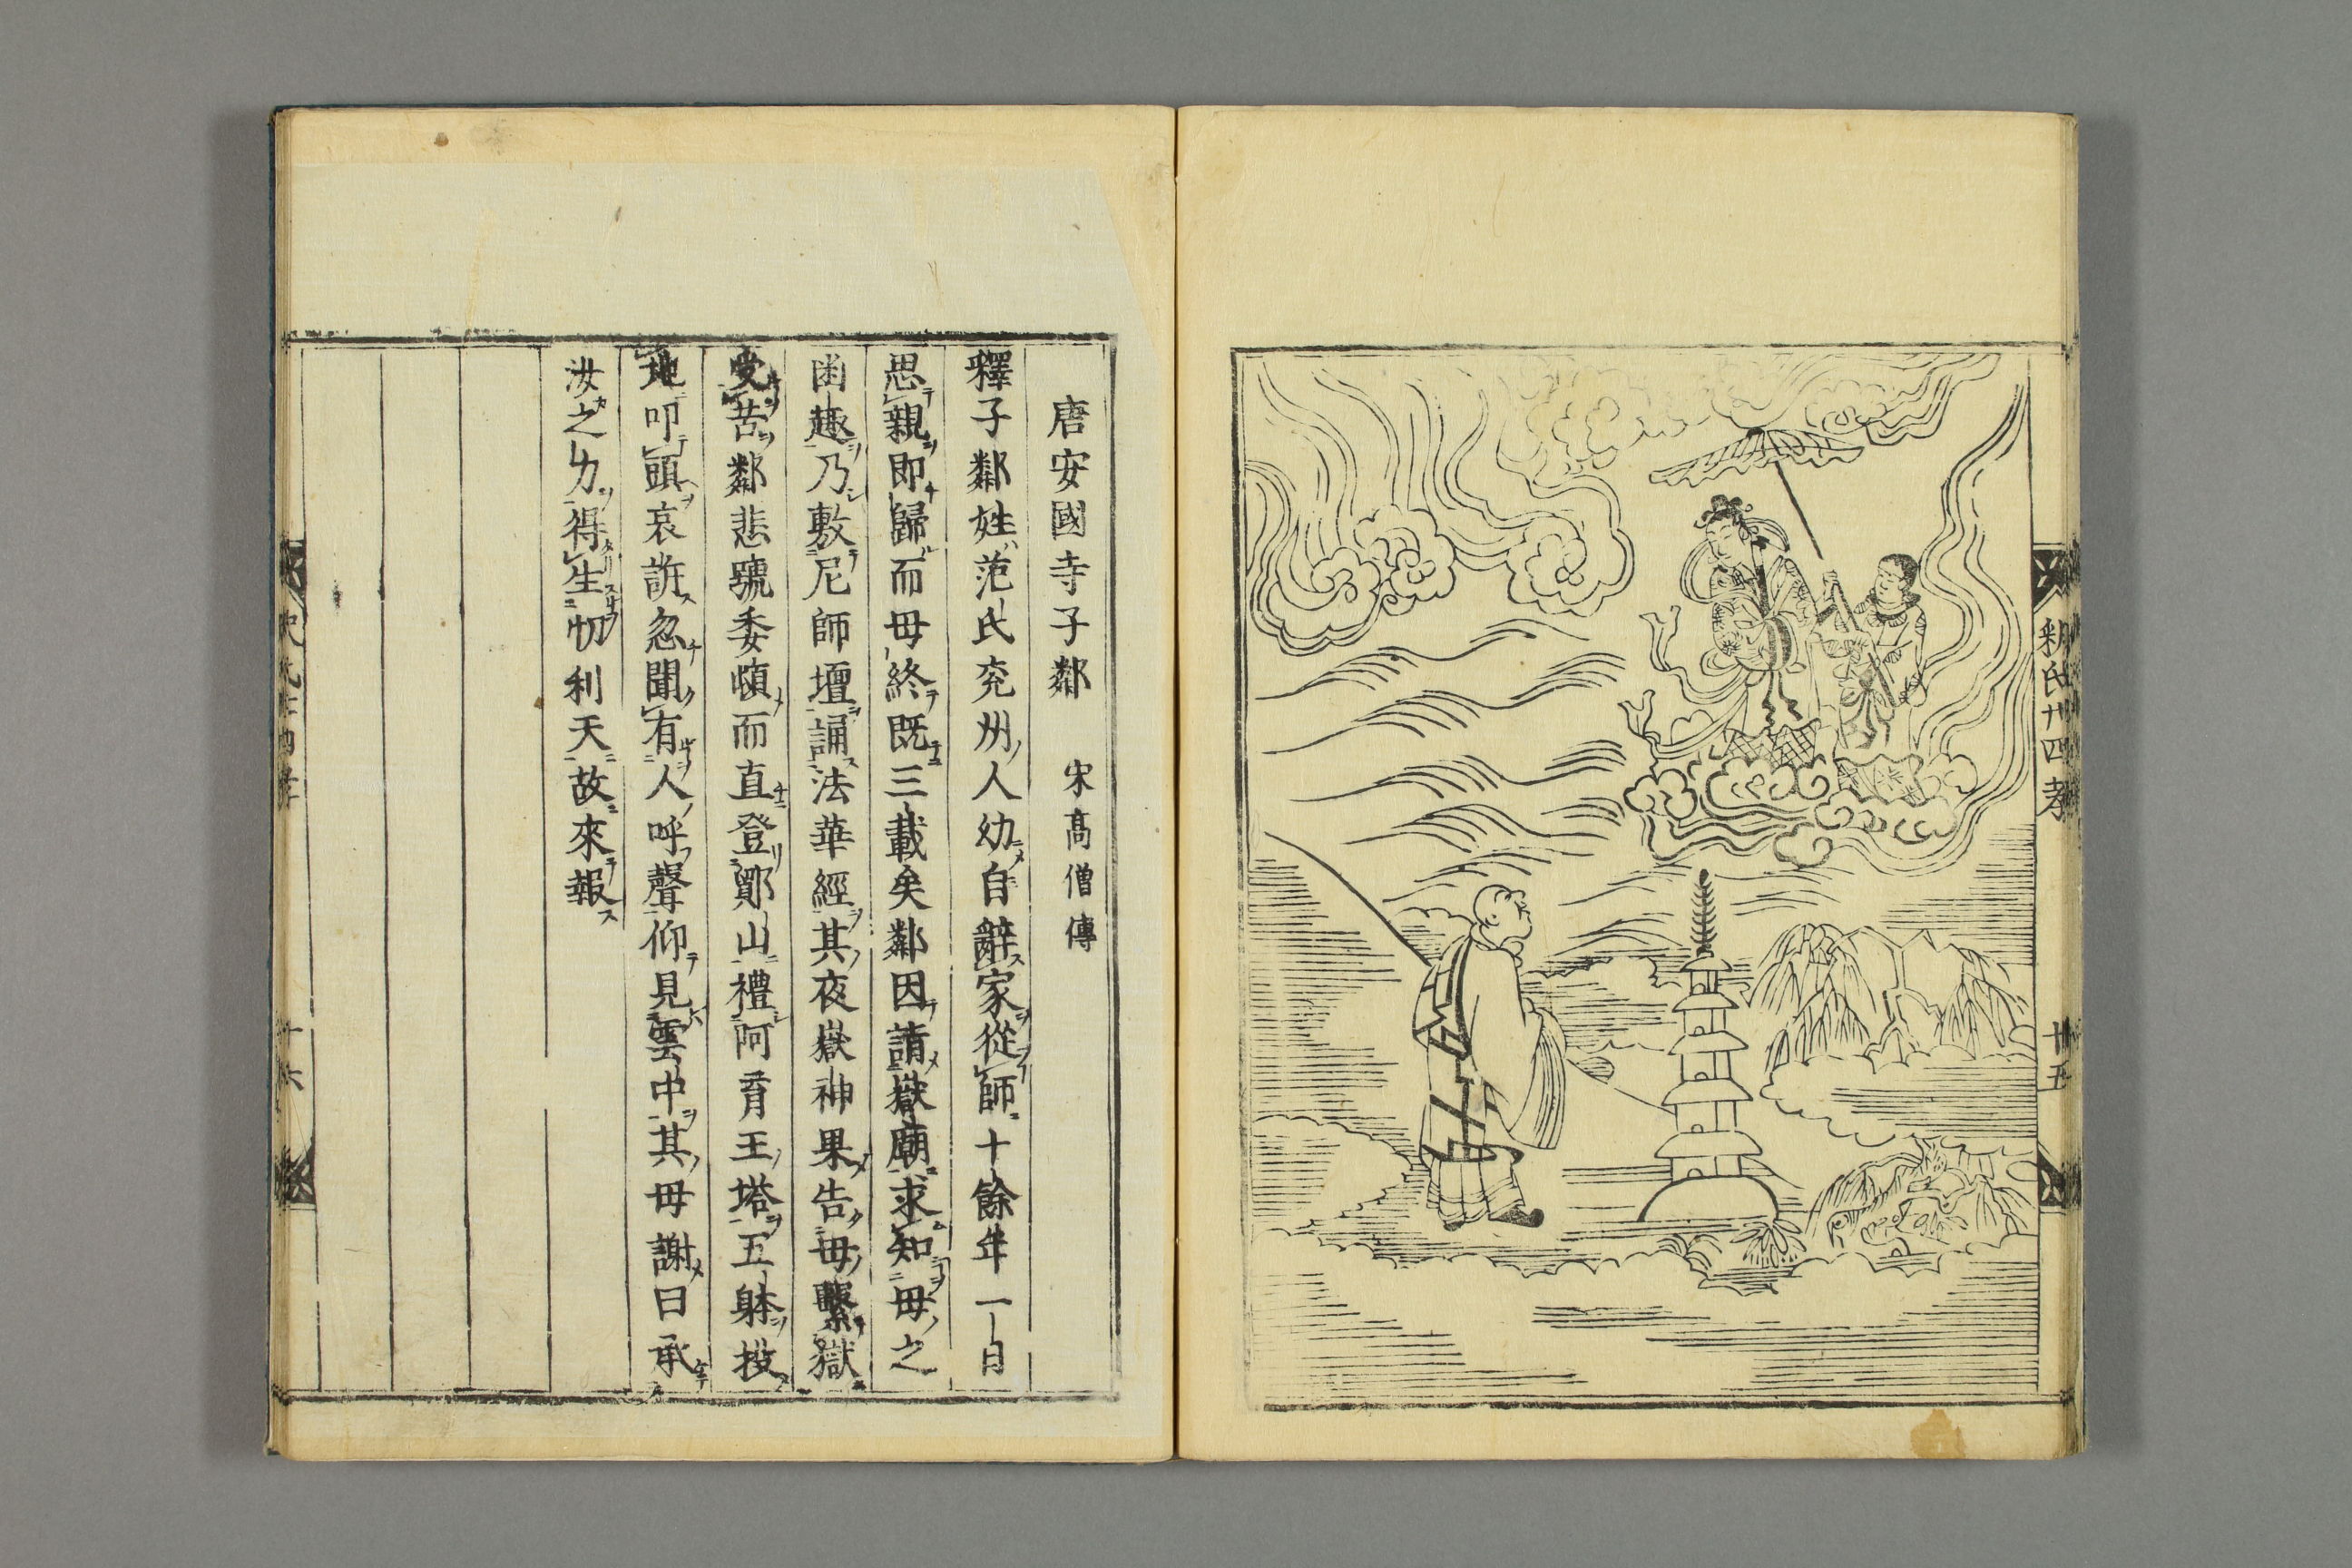 釈氏廿四孝
十五
唐安國寺子鄰　宋高僧傳
釋子鄰姓范氏兖州人幼自辭家從師十餘年一日
思親即歸而母終既三載矣鄰因請嶽廟求知母之
凾趣乃敷尼師壇誦法華經其夜嶽神果告母繫獄
受苦鄰悲號委頓而直登鄮山禮阿育王塔五躰投
地叩頭哀訴忽聞有人呼聲仰見雲中其母謝曰承
汝之力得生忉利天故來報
十六